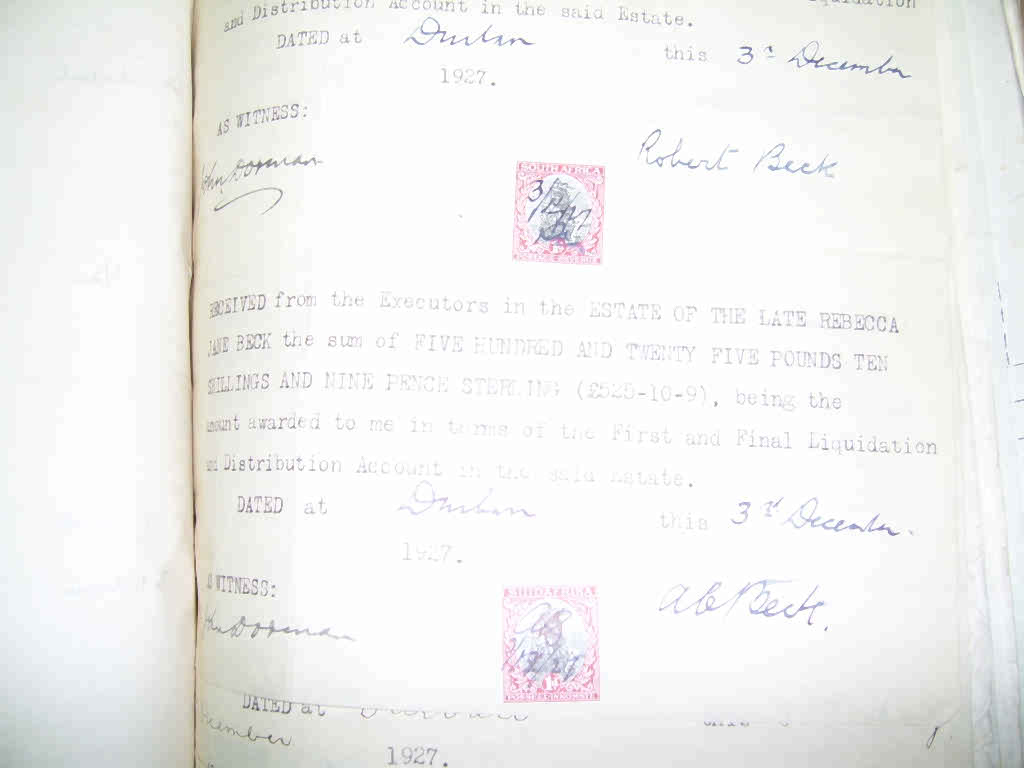 uidation
and Distribution Account in the said Estate.
DATED at Durban this 3rd December
1927.
AS WITNESS:
John Dorman
Robert Beck
SOUTH AFRICA
3/12/27
POSTAGE REVENUE
RECEIVED from the Executors in the ESTATE OF THE LATE REBECCA
JANE BECK the sum of FIVE HUNDRED AND TWENTY FIVE POUNDS TEN
SHILLINGS AND NINE PENCE STERLING (£525-10-9), being the
amount awarded to me in terms of the First and Final Liquidation
and Distribution Account in the said Estate.
DATED at Durban this 3rd December.
1927.
AS WITNESS:
John Dorman
A C Beck.
SUIDAFRIKA
3/12/27
1D
POSSEEL INKOMSTE
DATED at Durban this
December
1927.